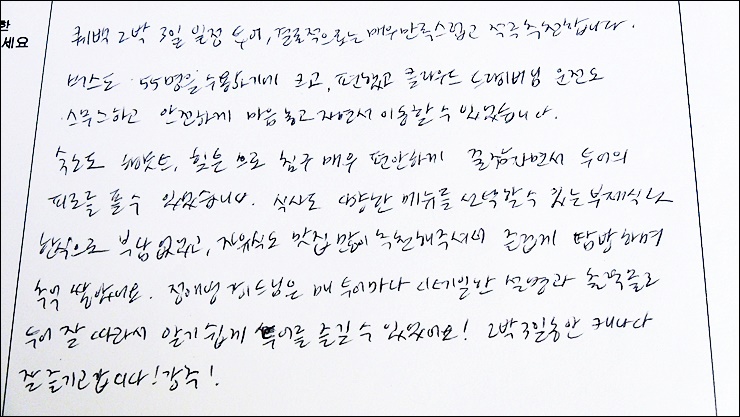 한
세요
퀘백 2박 3일 일정 투어, 결론적으로는 매우 만족스럽고 적극 추천합니다.
버스도 55명을 수용하게에 크고, 편했고 클라우드 드라이버님 운전도
스무스하고 안전하게 마음 놓고 자면서 이동할 수 있었습니다.
숙소도 햄튼, 힐튼 으로 침구 매우 편안하게 꿀잠자면서 투어의
피로를 풀 수 있었습니다. 식사도 다양한 메뉴를 선택할 수 있는 부페식
한식으로 부담 없었고, 자유식도 맛집 많이 추천해주셔서 즐겁게 탐방하며
추억 쌓았어요. 가이드님은 매 투어마다 디테일한 설명과
투어 잘 따라서 알기 쉽게 투어를 즐길 수 있었어요! 2박 3일동안 캐나다
잘 즐기고 갑니다! 강추!